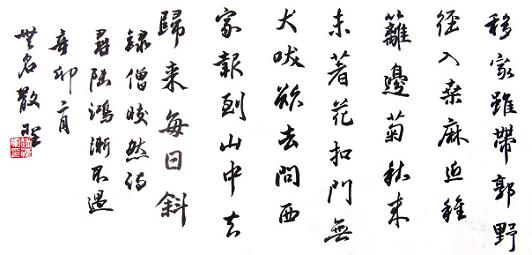 移家雖帶郭野
徑入桑麻近種
籬邊菊秋来
未著花扣門無
犬吠欲去問西
家報到山中去
歸来每日斜
録僧皎然詩
尋陸鴻漸不遇
辛卯二月
無名散